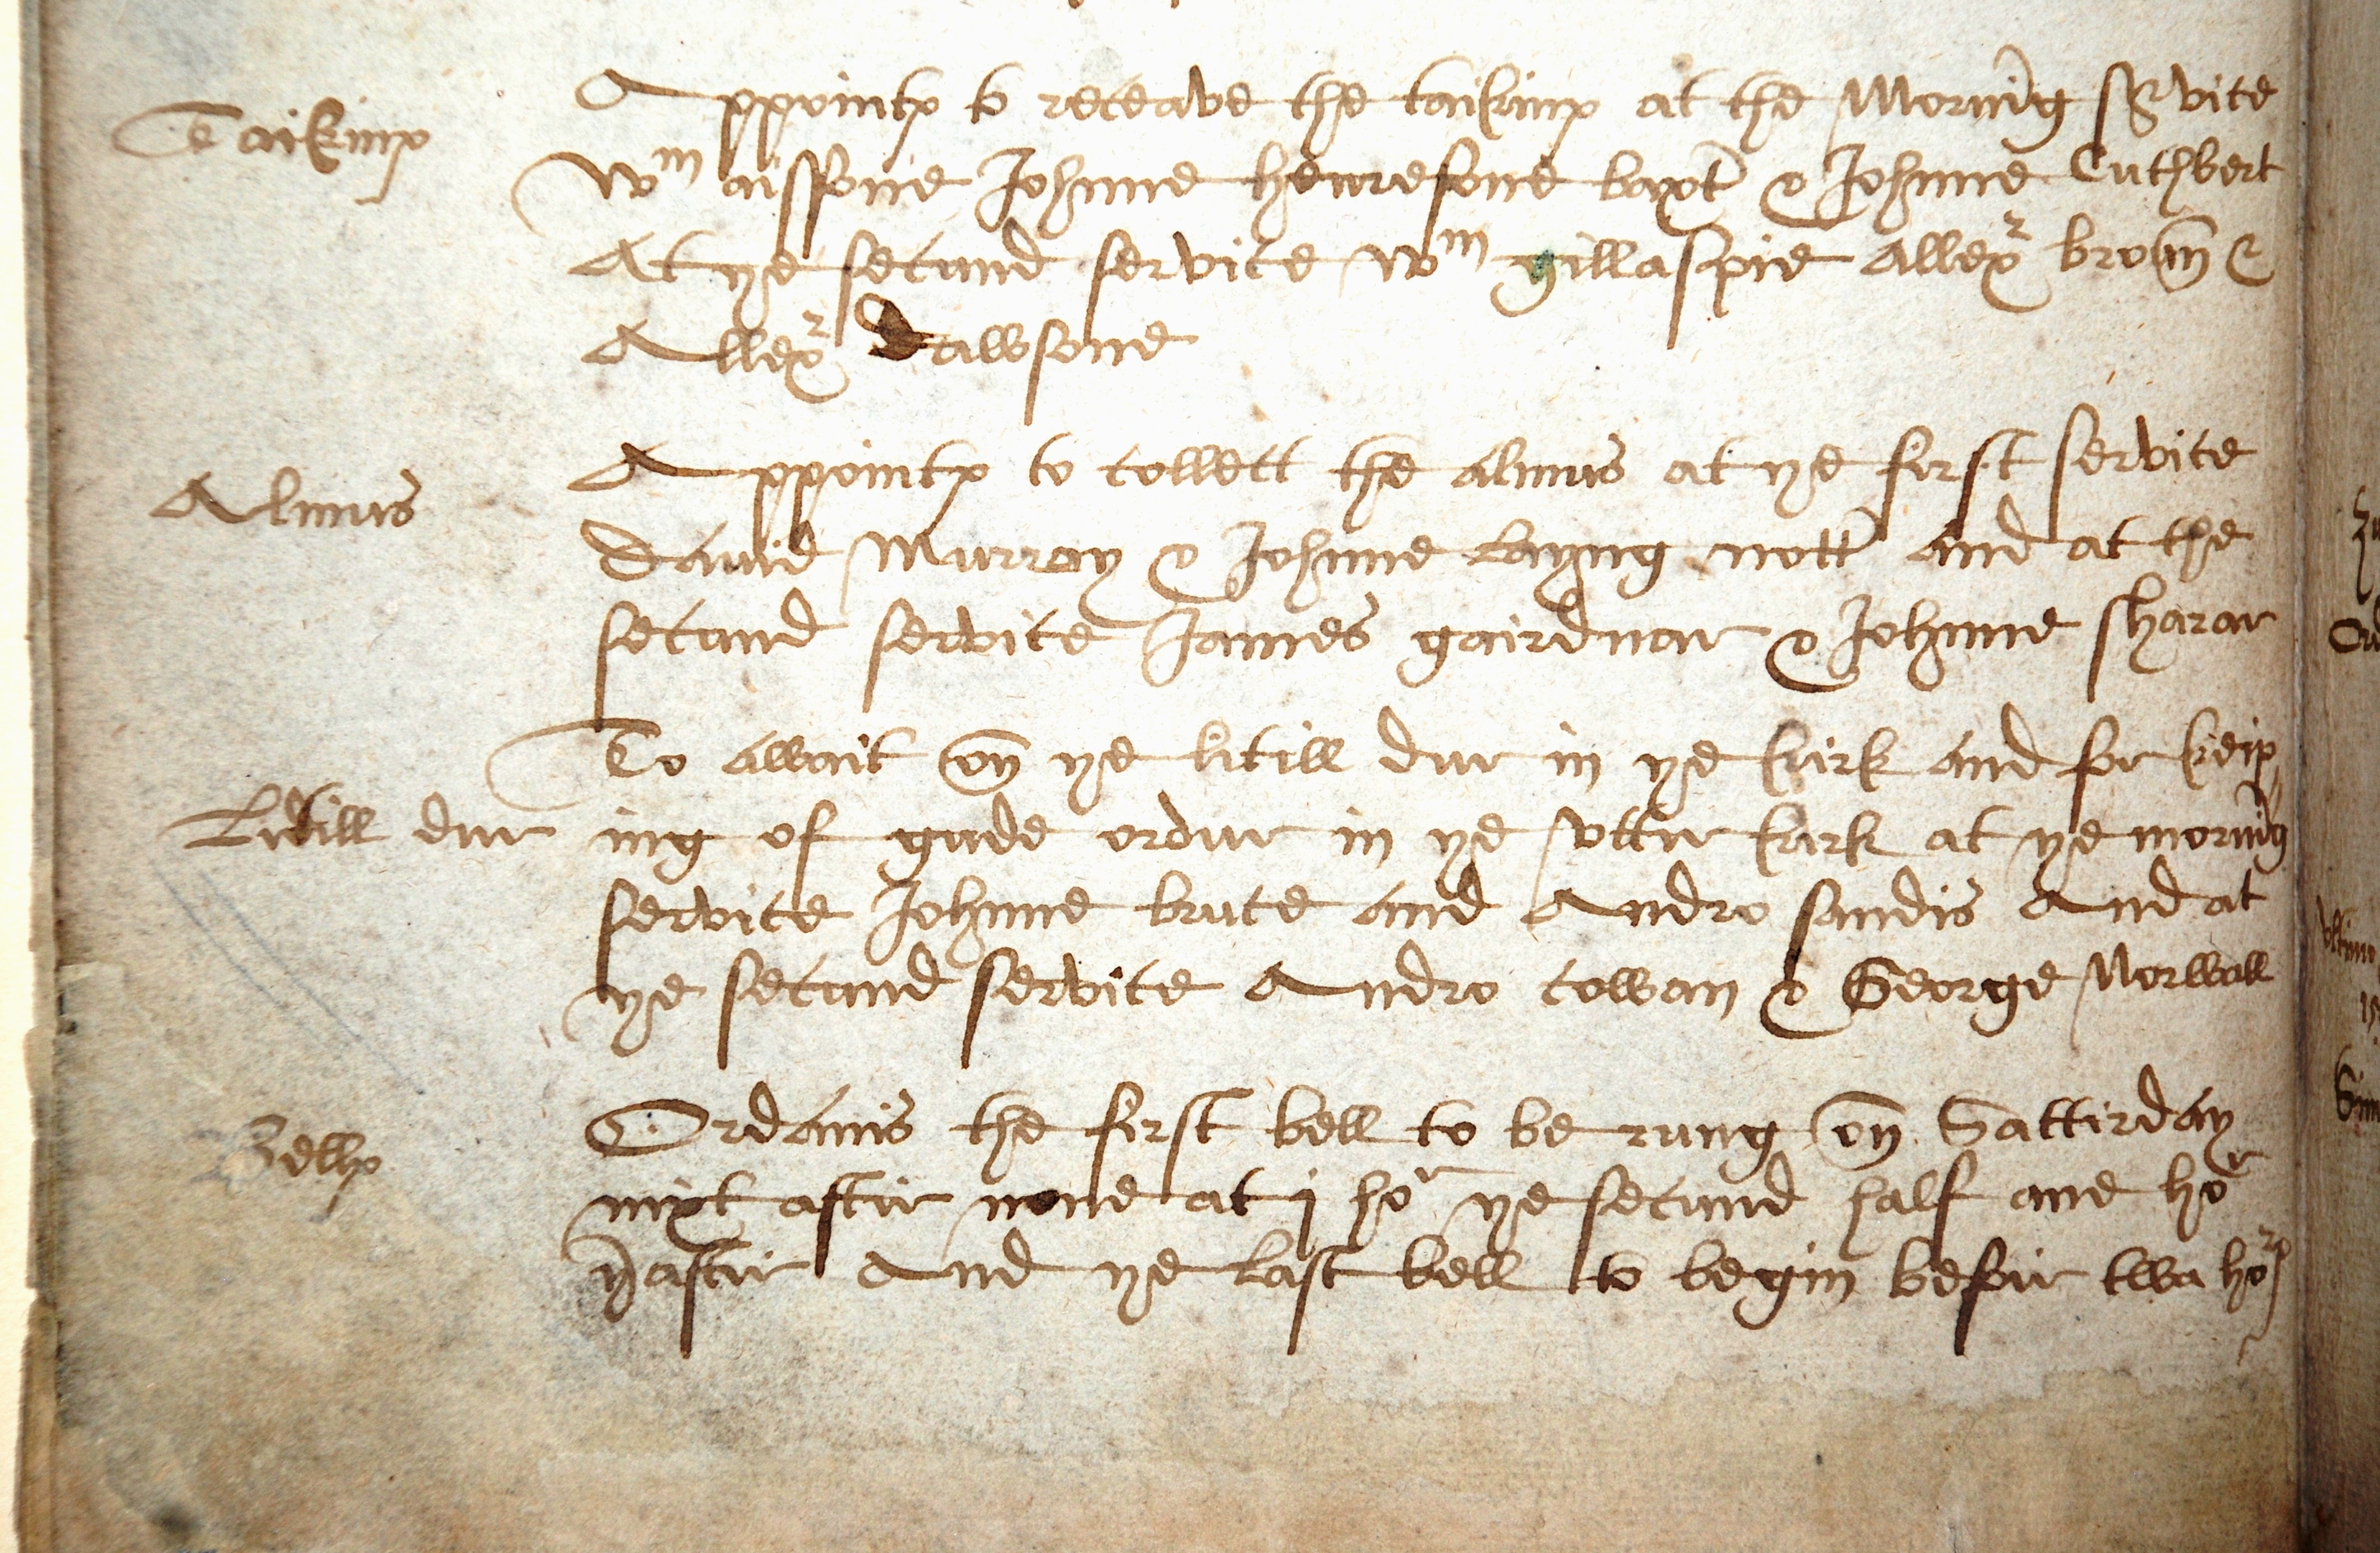 Taikinis
Appointis to receave the taikinis at the Morning service
Wm aissone Johnne henresone baxter & Johnne Cuthbert
At ye secund service Wm gillaspie Allexr broun &
Allexr Dawsone
Almus
Appointis to collett the almus at ye first service
Dauid Murray & Johnne Layng nottr and at the
secund service James gairdnar & Johnne sharar
To await on ye litill dur in ye kirk and for keip
Litill dur
ing of gude ordur in ye vttir kirk at ye morning
service Johnne bruce and Andro sandis And at
ye secund service Andro cowan & George Norwall
Bellis
Ordanis the first bell to be rung on Sattirday
nixt aftir none at j hor ye secund half ane hor
yraftir And ye last bell to begin befoir twa horis